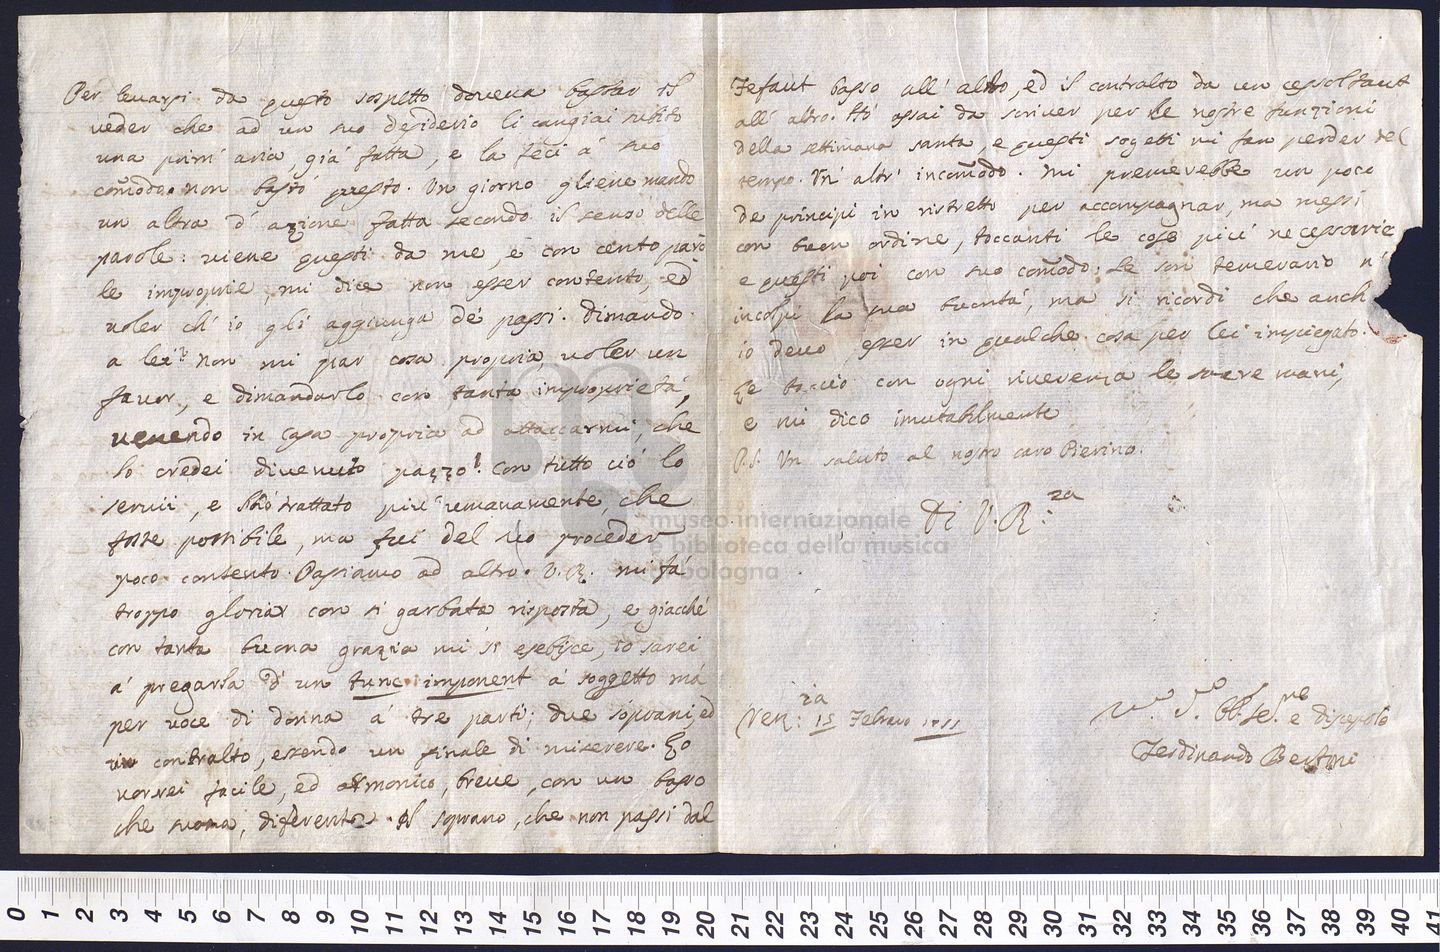 Per levarsi da questo sospetto doveva bastar il
veder che ad un suo desiderio li cangiai subito
una prim' aria, già fatta, e la feci à suo
comodo. non bastò questo. Un giorno gliene mando
un altra d' azione fatta secondo il senso delle
parole: viene questi da me, e con cento paro
le improprie, mi dice non esser contento, ed
voler ch' io gli aggiunga de' passi. Dimando
a lei: non mi par cosa propria, voler un
favor, e dimandarlo con tanta improprietà,
venendo in casa propria ad attaccarmi, che
lo credei divenuto pazzo! Con tutto ciò lo
servii, e trattato più umanamente, che
fosse possibile, ma fui del suo proceder
poco contento. Passiamo ad altro. V. R. mi fà
troppo gloriar con sì garbata risposta, e giacché
con tanta buona grazia mi si esebisce, io sarei
a' pregarla d' un tunc imponent à soggetto mà
per voce di donna à tre parti; due soprani, ed
un contralto, essendo un finale di miserere. Lo
vorrei facile, ed armonico, breve, con un basso
che suona, diferente. Il soprano, che non passi dal
Fefaut basso all' altro, ed il contralto da un cesolfaut
all' altro. Hò assai da scriver per le nostre funzioni
della settimana santa, e questi sogetti mi fan perder del
tempo. Un' altr' incommodo. Mi premerebbe un poco
de principj in ristretto per accompagnar, ma messi
con buon ordine, toccanti le cose più necessarie
e questi poi con suo comodo; se son temerario n'
incolpi la sua buontà, ma si ricordi che anch'
io devo esser in qualche cosa per lei impiegato.
Le baccio con ogni riverenza le sacre mani,
e mi dico imutabilmente
P.S. Un saluto al nostro caro Pierino.
Di V. R.za
Ven:zia 15 Febraro
e dissepolo
Ferdinando Bertoni
museo internazionale
e biblioteca della musica
di bologna
0 1 2 3 4 5 6 7 8 9 10 11 12 13 14 15 16 17 18 19 20 21 22 23 24 25 26 27 28 29 30 31 32 33 34 35 36 37 38 39 40 41